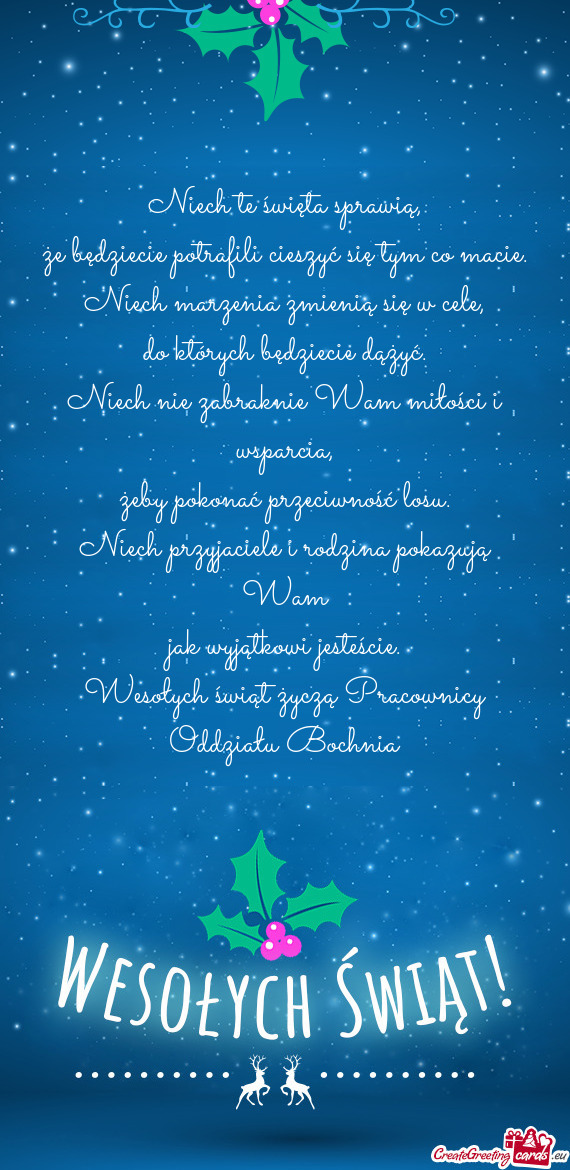 Niech te święta sprawią,
że będziecie potrafili cieszyć się tym co macie.
Niech marzenia zmienią się w cele,
do których będziecie dążyć.
Niech nie zabraknie Wam miłości i
wsparcia,
żeby pokonać przeciwność losu.
Niech przyjaciele i rodzina pokazują
Wam
jak wyjątkowi jesteście.
Wesołych świąt życzą Pracownicy
Oddziału Bochnia
Wesołych Świąt!
CreateGreeting cards .eu